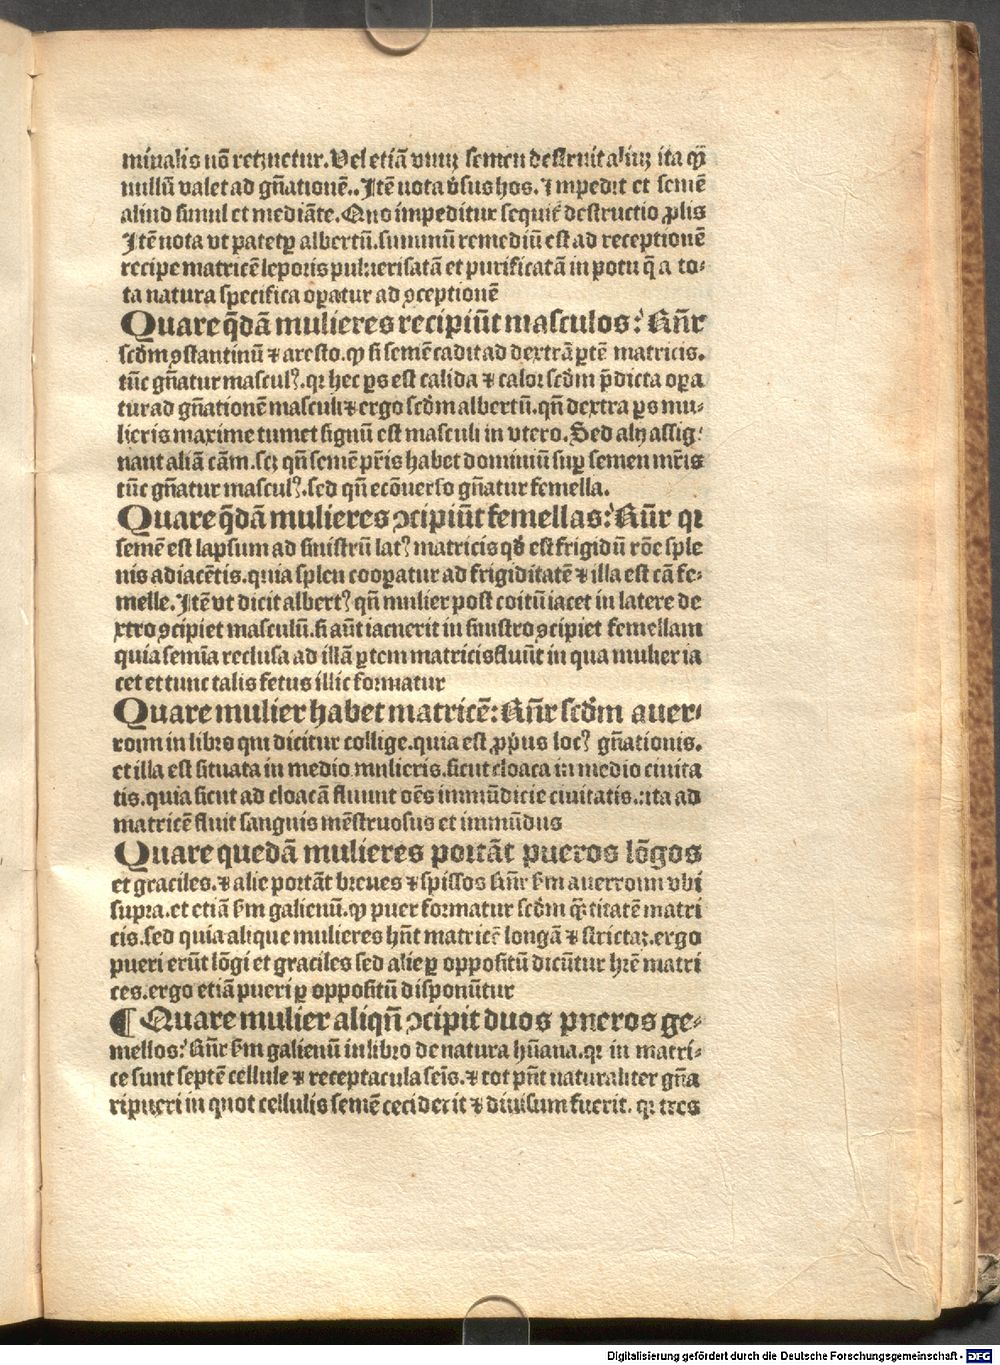 minalis nō retinetur. Vel etiā vnuꝫ semen destruit aliuꝫ ita ꝙ
nullū valet ad gñationē.. Itē nota ꝟsus hos. Impedit et semē
aliud simul et mediāte. Quo impeditur sequiť destructio ꝓlis
Itē nota vt patet ꝑ albertū. summū remediū est ad receptionē
recipe matricē leporis puluerisatā et purificatā in potu q̄ a to-
ta natura specifica oꝑatur ad ꝯceptionē
Quare q̄dā mulieres recipiūt masculos? Rñr
scďm ꝯstantinū ⁊ aresto. ꝙ si semē cadit ad dextrā ꝑtē matricis.
tūc gñatur masculꝰ. qꝛ hec ꝑs est calida ⁊ calor scďm p̄dicta oꝑa
tur ad gñationē masculi ⁊ ergo scďm albertū. qñ dextra ꝑs mu-
lieris maxime tumet signū est masculi in vtero. Sed alij assig-
nant aliā cām. scꝫ qñ semē pr̄is habet dominiū suꝑ semen mr̄is
tūc gñatur masculꝰ. sed qñ ecōuerso gñatur femella.
Quare q̄dā mulieres ꝯcipiūt femellas? Rñr qꝛ
semē est lapsum ad sinistrū latꝰ matricis qď est frigidū rōe sple
nis adiacētis. quia splen cooꝑatur ad frigiditatē ⁊ illa est cā fe-
melle. Itē vt dicit albertꝰ qñ mulier post coitū iacet in latere de
xtro ꝯcipiet masculū. si aūt iacuerit in sinistro ꝯcipiet femellam
quia semīa reclusa ad illā ꝑtem matricis fluūt in qua mulier ia
cet et tunc talis fetus illic formatur
Quare mulier habet matricē: Rñr scďm auer-
roim in libro qui dicitur collige. quia est ꝓpͥus locꝰ gñationis.
et illa est situata in medio mulieris. sicut cloaca in medio ciuita
tis. quia sicut ad cloacā fluunt oēs immūdicie ciuitatis. ita ad
matricē fluit sanguis mēstruosus et immūdus
Quare quedā mulieres portāt pueros lōgos
et graciles. ⁊ alie portāt breues ⁊ spissos Rñr ẜm auerroim vbi
supra. et etiā ẜm galienū. ꝙ puer formatur scďm q̄ꝫtitatē matri
cis. sed quia alique mulieres hñt matricē longā ⁊ strictaꝫ. ergo
pueri erūt lōgi et graciles sed alie ꝑ oppositū dicūtur hr̄e matri
ces. ergo etiā pueri ꝑ oppositū disponūtur
¶ Quare mulier aliqñ ꝯcipit duos pueros ge-
mellos? Rñr ẜm galienū in libro de natura hūana. qꝛ in matri-
ce sunt septē cellule ⁊ receptacula seīs. ⁊ tot pñt naturaliter gña
ri pueri in quot cellulis semē ceciderit ⁊ diuisum fuerit. qꝛ tres
Digitalisierung gefördert durch die Deutsche Forschungsgemeinschaft - DFG